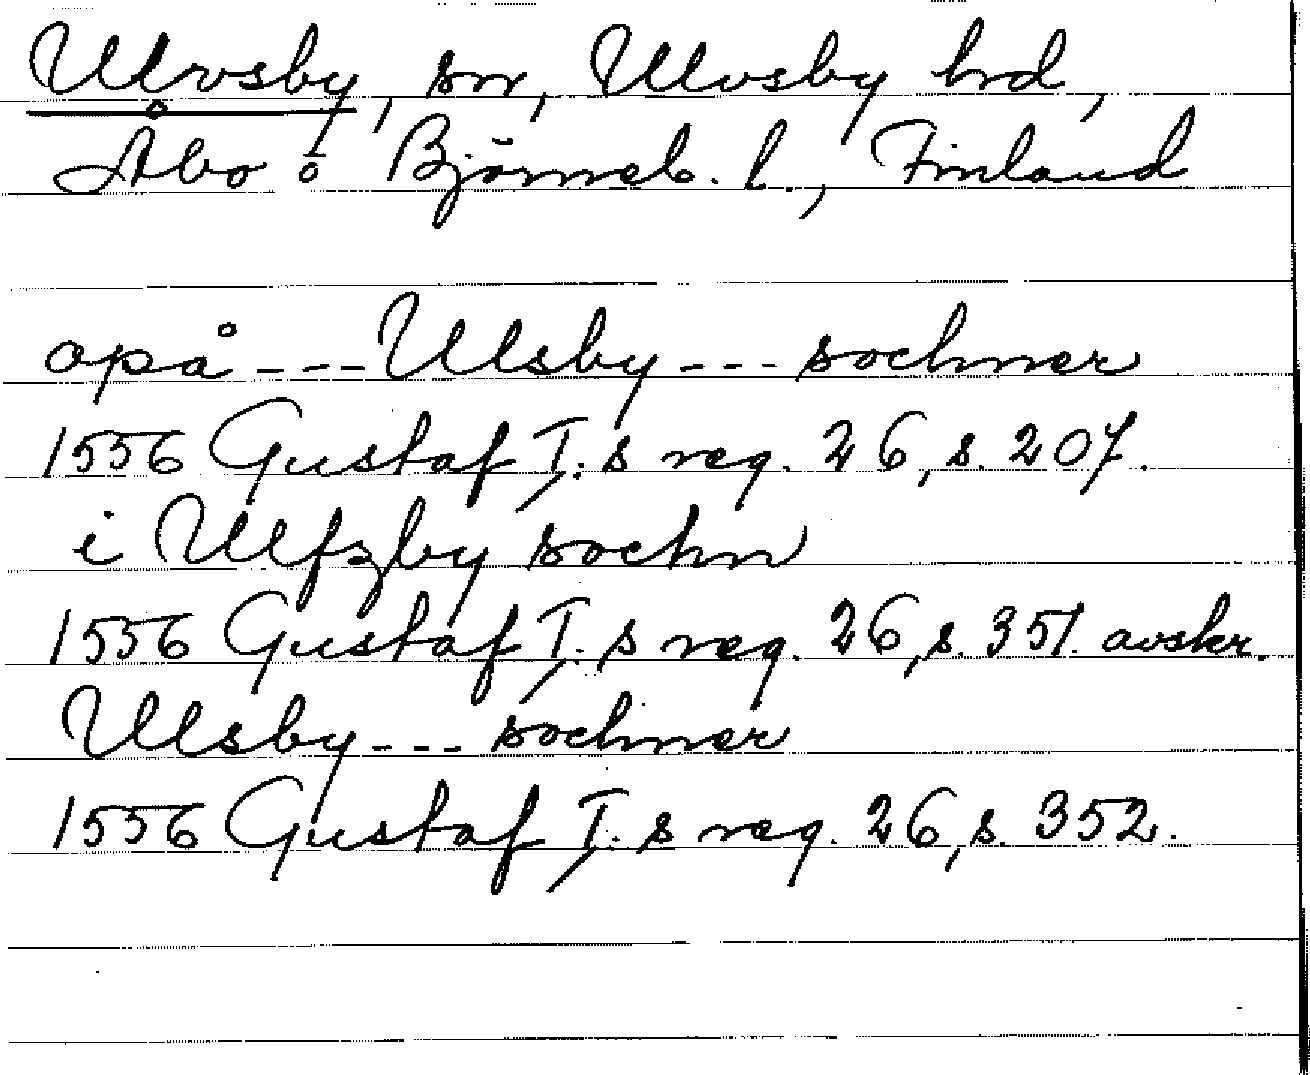 Ulvsby, sn, Ulvsby hrd,
Åbo o Björneb. l., Finland
opå --- Ulsby --- sochner
1556 Gustaf I:s reg. 26, s. 207.
i Ulfzby sochn
1556 Gustaf I:s reg. 26, s. 351. avskr.
Ulsby --- sochner
1556 Gustaf I:s reg. 26, s. 352.